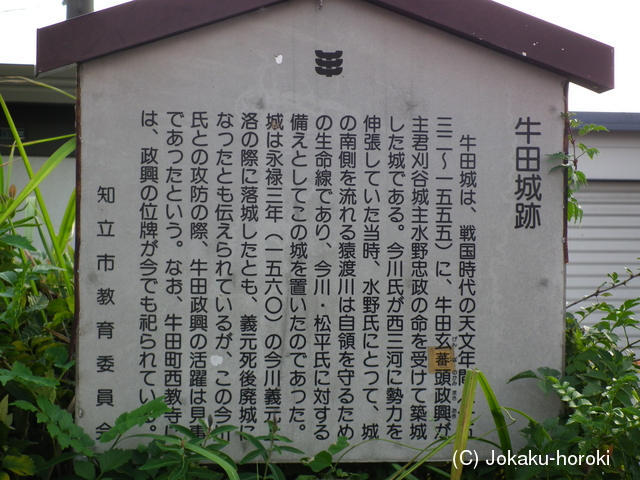 牛田城跡
牛田城は、戦国時代の天文年間
三二～一五五五)に、牛田玄蕃頭政興が
主君刈谷城主水野忠政の命を受けて築城
した城である。今川氏が西三河に勢力を
伸張していた当時、水野氏にとって、城
の南側を流れる猿渡川は自領を守るため
の生命線であり、今川・松平氏に対する
備えとしてこの城を置いたのであった。
城は永禄三年(一五六〇)の今川義元上
洛の際に落城したとも、義元死後廃城に
なったとも伝えられているが、この今川
氏との攻防の際、牛田政興の活躍は見事
であったという。なお、牛田町西教寺に
は、政興の位牌が今でも祀られている。
知立市教育委員会
(C) Jokaku-horoki